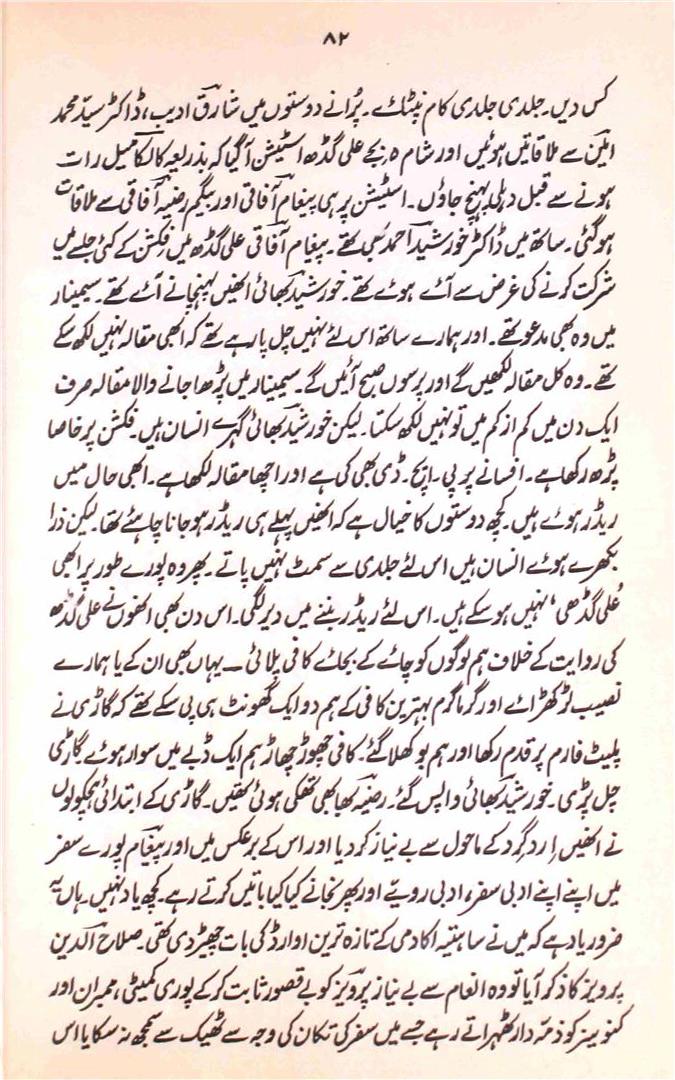 ۸۲
کس دیں۔ جلدی جلدی کام نپٹائے۔ پُرانے دوستوں میں شارق ادیب، ڈاکٹر سیّد محمد
امین سے ملاقاتیں ہوئیں اور شام ۵ بجے علی گڈھ اسٹیشن آ گیا کہ بذریعہ کالکا میل رات
ہونے سے قبل دہلی پہنچ جاؤں۔ اسٹیشن پر ہی پیغام آفاقی اور بیگم رضیہ آفاقی سے ملاقات
ہو گئی۔ ساتھ میں ڈاکٹر خورشید احمد بھی تھے۔ پیغام آفاقی علی گڈھ میں فکشن کے کئی جلسے میں
شرکت کرنے کی غرض سے آئے ہوئے تھے۔ خورشید بھائی انھیں پہنچانے آئے تھے۔ سیمینار
میں وہ بھی مدعو تھے۔ اور ہمارے ساتھ اس لئے نہیں چل پا رہے تھے کہ ابھی مقالہ نہیں لکھ سکے
تھے۔ وہ کل مقالہ لکھیں گے اور پرسوں صبح آئیں گے۔ سیمینار میں پڑھا جانے والا مقالہ صرف
ایک دن میں کم از کم میں تو نہیں لکھ سکتا۔ لیکن خورشید بھائی گہرے انسان ہیں۔ فکشن پر خاصا
پڑھ رکھا ہے۔ افسانے پر پی۔ ایچ۔ ڈی بھی کی ہے اور اچھا مقالہ لکھا ہے۔ ابھی حال میں
ریڈر ہوئے ہیں۔ کچھ دوستوں کا خیال ہے کہ انھیں پہلے ہی ریڈر ہو جانا چاہئے تھا۔ لیکن ذرا
بکھرے ہوئے انسان ہیں اس لئے جلدی سے سمٹ نہیں پاتے۔ پھر وہ پورے طور پر ابھی
’علی گڈھی‘ نہیں ہو سکے ہیں۔ اس لئے ریڈر بننے میں دیر لگی۔ اس دن بھی انھوں نے علی گڈھ
کی روایت کے خلاف ہم لوگوں کو چائے کے بجائے کافی پلائی۔ یہاں بھی ان کے یا ہمارے
نصیب لڑکھڑائے اور گرماگرم بہترین کافی کے ہم دو ایک گھونٹ ہی پی سکے تھے کہ گاڑی نے
پلیٹ فارم پر قدم رکھا اور ہم بوکھلا گئے۔ کافی چھوڑ چھاڑ ہم ایک ڈبے میں سوار ہوئے گاڑی
چل پڑی۔ خورشید بھائی واپس گئے۔ رضیہ بھابھی تھکی ہوئی تھیں۔ گاڑی کے ابتدائی ہچکولوں
نے انھیں اِردگِرد کے ماحول سے بے نیاز کر دیا اور اس کے برعکس میں اور پیغام پورے سفر
میں اپنے اپنے ادبی سفر، ادبی رویے اور پھر نجانے کیا کیا باتیں کرتے رہے۔ کچھ یاد نہیں۔ ہاں یہ
ضرور یاد ہے کہ میں نے ساہتیہ اکادمی کے تازہ ترین اوارڈ کی بات چھیڑ دی تھی۔ صلاح الدین
پرویز کا ذکر آیا تو وہ انعام سے بے نیاز پرویز کو بے قصور ثابت کر کے پوری کمیٹی، ممبران اور
کنوینر کو ذمّہ دار ٹھہراتے رہے جسے میں سفر کی تکان کی وجہ سے ٹھیک سے سمجھ نہ سکا یا اس